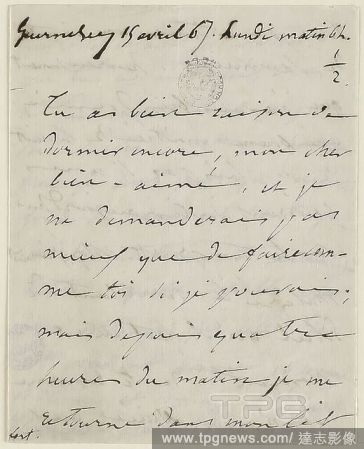 Guernesey 15 avril 67. Lundi matin 6h.
1/2
Tu as bien raison de
dormir encore, mon cher
bien-aimé, et je
ne demanderais pas
mieux que de faire com-
me toi si je pouvais ;
mais depuis quatre
heures du matin je me
retourne dans mon lit
fort.
TPG
www.tpgnews.com/ 達志影像